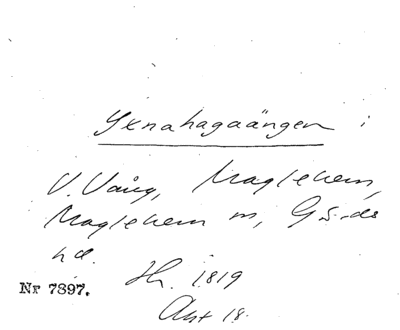 Yxnahagaängen i
V. Vång, Maglehem,
Maglehem sn, Gärds
hd. Hh. 1819
Nr 7397.
Akt 18.